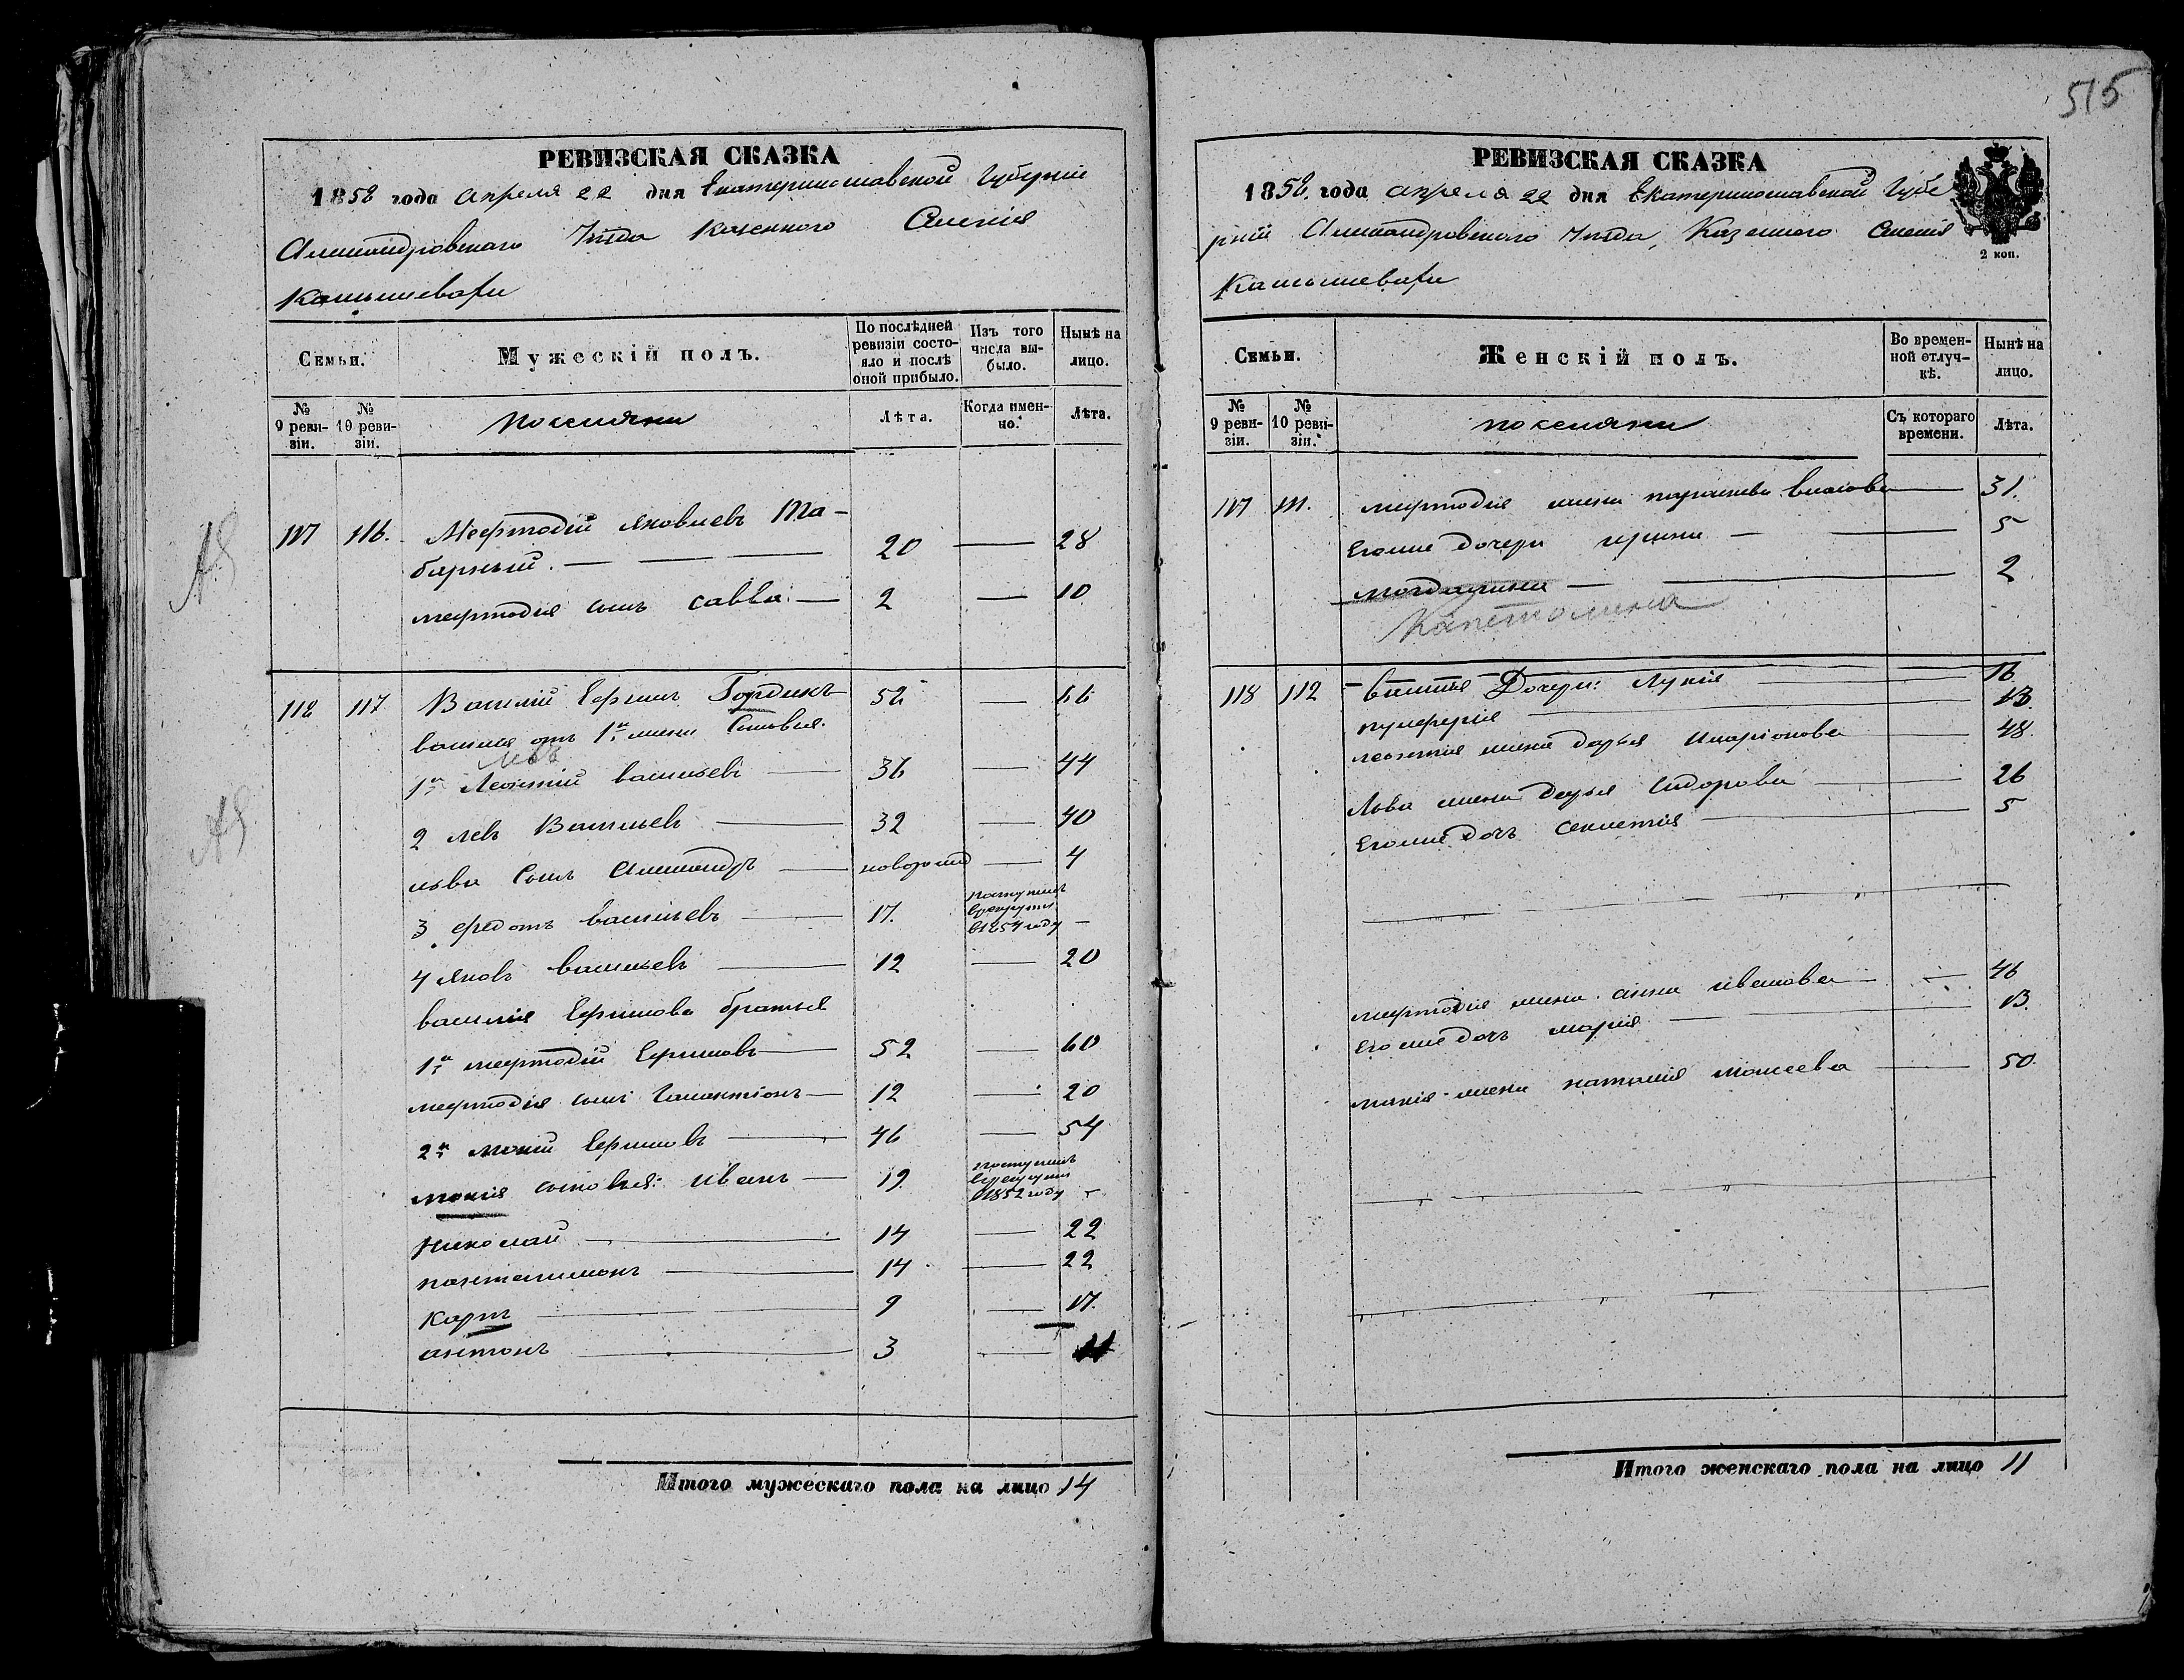 515
РЕВИЗСКАЯ СКАЗКА
1858 года апреля 22 дня Екатеринославской Губернии
Александровского Уезда Казенного Селения
Камышевахи
Семьи.
Мужескій полъ.
По послѣдней ревизіи состояло и послѣ оной прибыло.
Изъ того числа выбыло.
Нынѣ на лицо.
№ 9 ревизіи.
№ 10 ревизіи.
поселяни
Лѣта.
Когда именно.
Лѣта.
117 116. Мефтодій Яковлевъ Та-
барный. — — 20 — 28
мефтодия сынъ савва — 2 — 10
118 117 Василий Ефимъ Гордикъ 58 — 66
василия отъ 1й жены Сыновья
1й Леонтий васильевъ — 36 — 44
2 левъ Васильевъ — 32 — 40
льва Сынъ Александръ — новорожд — 4
3 федотъ васильевъ — 17. поступилъ
в рекруты
в 1854 году —
4 Яковъ васильевъ — 12 — 20
василия Ефимова братья
1й мефтодий Ефимовъ — 52 — 60
мефтодия сынъ Галактионъ — 12 — 20
2й мокий Ефимовъ — 46 — 54
мокия сыновья: Иванъ — 19 поступилъ
в рекруты
в 1852 году —
Николай — 14 — 22
пантелимонъ — 14 — 22
Карпъ — 9 — 17.
антонъ — 3 — 11
Итого мужескаго пола на лицо 14
РЕВИЗСКАЯ СКАЗКА
1858. года апреля 22 дня Екатеринославской Губе
рнии Александровского Уезда, Казенного Селения
Камышевахи
2 коп.
Семьи.
Женскій полъ.
Во временной отлучкѣ.
Нынѣ на лицо.
№ 9 ревизіи.
№ 10 ревизіи.
поселяни
Съ котораго времени.
Лѣта.
117 111. мефтодия жена парасковья власова — 31.
Егоже дочери ирина — 5
магдалина — 2
Капетолина
118 112 василия Дочери: Лукия — 16
пульферия — 13.
леонтия жена дарья Иларионова — 48.
Льва жена дарья Сидорова — 26
Егоже дочъ Секлетия — 5
мефтодия жена анна иванова — 46
Егоже дочъ мария — 13.
мокия жена наталия Моисеева — 50.
Итого женскаго пола на лицо 11